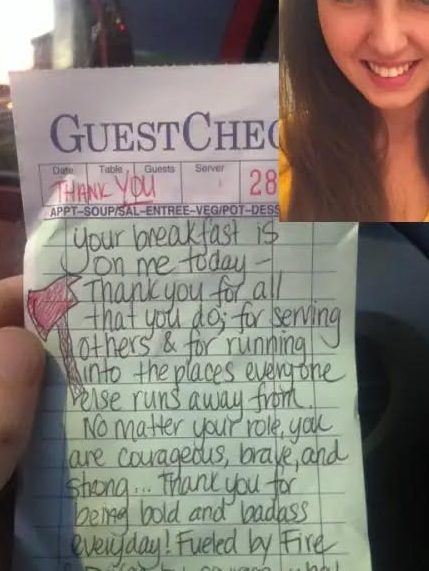 GUESTCHEC
Date Table Guests Server
THANK YOU 28
APPT-SOUP/SAL-ENTREE-VEG/POT-DESS
your breakfast is
on me today -
Thank you for all
that you do; for serving
others & for running
into the places everyone
else runs away from.
No matter your role, you
are courageous, brave, and
strong... Thank you for
being bold and badass
everyday! Fueled by Fire